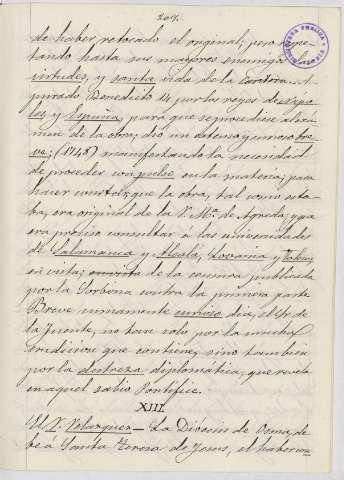 209.
de haber retocado el original; pero respe-
tando hasta sus mayores enemigos las
virtudes, y santa vida de la Escritora. A-
purado Benedicto 14 por los reyes de Nápo-
les y España, para que se procediese al exá-
men de la obra; dió un extenso y curioso bre-
ve; (1748) manifestando la necesidad
de proceder con pulso en la materia; para
hacer constar, que la obra, tal como esta-
ba, era original de la V. M.e de Agreda; y que
era preciso consultar á las universidades
de Salamanca y Alcalá, Lovaina y Tolosa
en vista; de la censura publicada
por la Sorbona contra la primera parte
Breve sumamente curioso dice, el Sr. de
la Fuente, no tan solo por la mucha
erudicion que contiene, sino tambien
por la destreza diplomática, que revela
en aquel sabio Pontífice.
XIII.
El V. Velazquez — La Diócesis de Osma, de-
be á Santa Teresa de Jesus, el haber